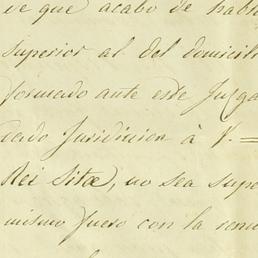 de que acabo de habl
superior al del domicili
formado ante este Juzga
cado Juridicion à V. =
Rei Sitæ), no sea supe
mismo fuero con la renu